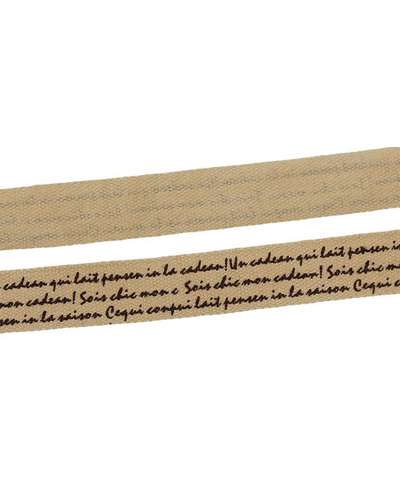 cadean qui lait pensen in la cadean! Un cadean qui lait pensen in la
mon cadean! Sois chic mon c Sois chic mon cadean! Sois chic
sen in la saison Cequi conpui lait pensen in la saison Cequi